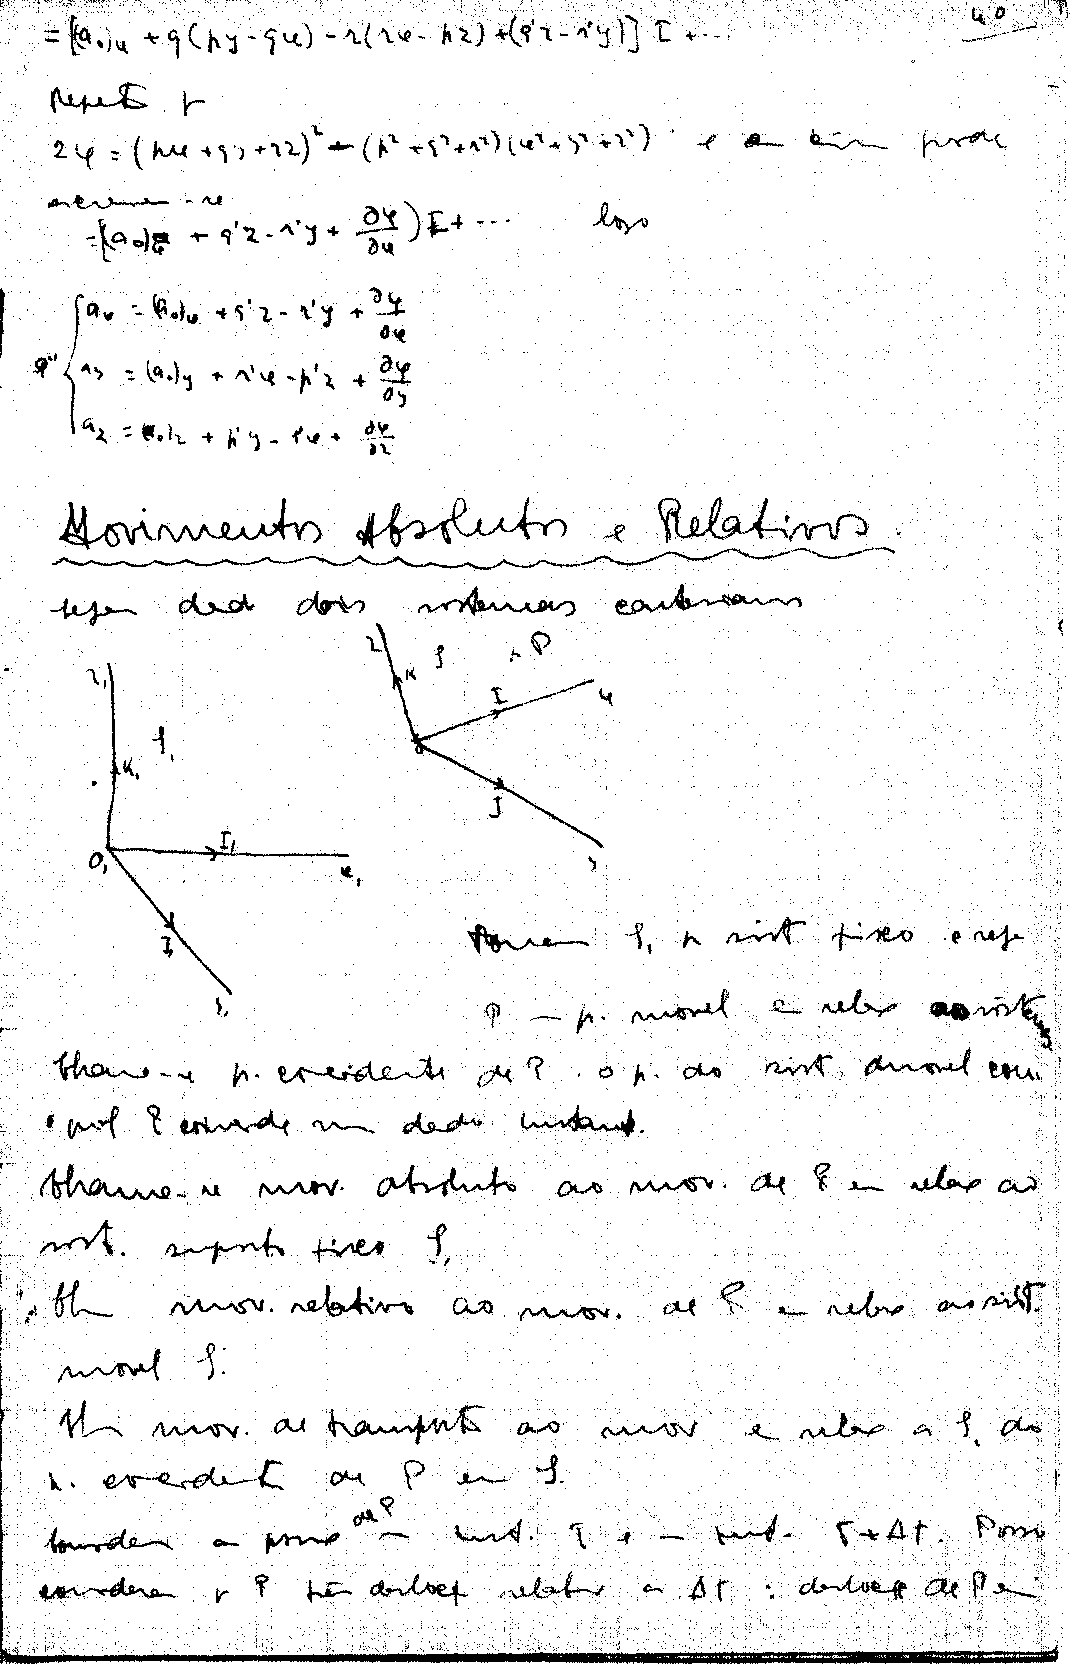 40
= [(a₀)x + q(py - qx) - r(rx - pz) + (q'z - r'y)] I + ...
2φ = (px + qy + rz)² - (p² + q² + r²)(x² + y² + z²) e a
= ((a₀)x + q'z - r'y + ∂φ/∂x) I + ... logo
ax = (a₀)x + q'z - r'y + ∂φ/∂x
ay = (a₀)y + r'x - p'z + ∂φ/∂y
az = (a₀)z + p'y - q'x + ∂φ/∂z
Movimentos Absolutos e Relativos.
sejam dad dois sistemas cartesianos
z K S P I x
O J y
z₁ K₁ S₁
O₁ I₁ x₁
J y₁
S₁ o sist fixo e seja
P — p. movel e relaç ao sist
Chama-se p. coincidente de P o p. do sist. movel com
o qual P coincide num dado instant.
Chama-se mov. absoluto ao mov. de P em relaç ao
sist. suposto fixo S₁
Ch mov. relativo ao mov. de P e relaç ao sist.
movel S.
Ch mov. de transporte ao mov e relaç a S₁ do
p. coincident de P em S.
de P inst. T e inst. T + Δt. Posso
considerar q P tem desloc relativ Δt : desloc de P e